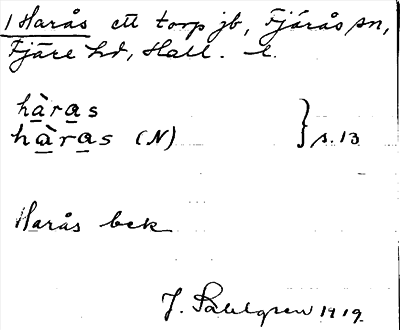 1 Harås ett torp jb, Fjärås sn,
Fjäre hd, Hall. l.
hàras
hàras (N) } s. 13
Harås bek
J. Sahlgren 1919.